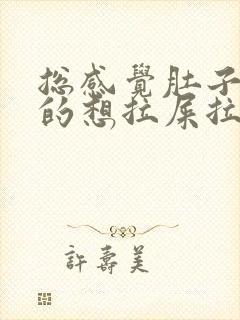 总感覺肚子
的想拉屎拉
許壽美